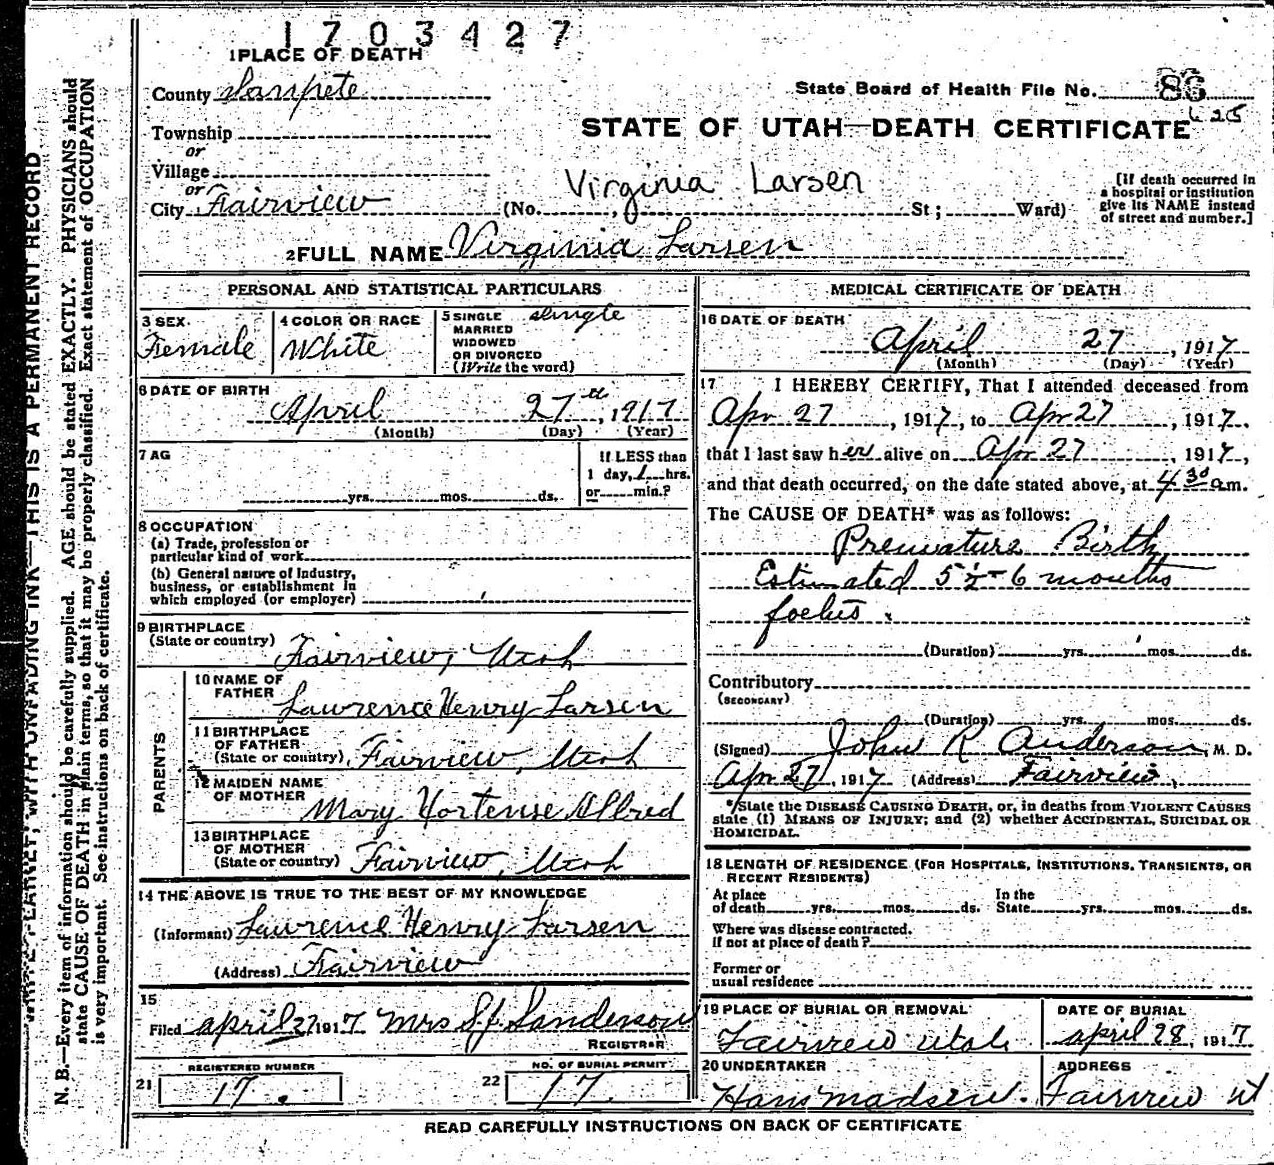 1703427
1 PLACE OF DEATH
County Sanpete
State Board of Health File No. 86
625
Township
or
STATE OF UTAH—DEATH CERTIFICATE
Village
or
Virginia Larsen
City Fairview (No. , St; Ward)
[If death occurred in a hospital or institution give its NAME instead of street and number.]
2 FULL NAME Virginia Larsen
PERSONAL AND STATISTICAL PARTICULARS
3 SEX Female
4 COLOR OR RACE White
5 SINGLE MARRIED WIDOWED OR DIVORCED (Write the word) single
6 DATE OF BIRTH
April 27th, 1917
(Month) (Day) (Year)
7 AG
yrs. mos. ds.
If LESS than
1 day, 1 hrs.
or min.?
8 OCCUPATION
(a) Trade, profession or
particular kind of work
(b) General nature of Industry,
business, or establishment in
which employed (or employer)
9 BIRTHPLACE
(State or country) Fairview, Utah
PARENTS
10 NAME OF
FATHER
Lawrence Henry Larsen
11 BIRTHPLACE
OF FATHER
(State or country) Fairview, Utah
12 MAIDEN NAME
OF MOTHER
Mary Hortense Allred
13 BIRTHPLACE
OF MOTHER
(State or country) Fairview, Utah
14 THE ABOVE IS TRUE TO THE BEST OF MY KNOWLEDGE
(Informant) Lawrence Henry Larsen
(Address) Fairview
15
Filed april 27 1917 Mrs S J Sanderson
REGISTRAR
REGISTERED NUMBER
21 17.
NO. OF BURIAL PERMIT
22 17
MEDICAL CERTIFICATE OF DEATH
16 DATE OF DEATH
April 27, 1917
(Month) (Day) (Year)
17 I HEREBY CERTIFY, That I attended deceased from
Apr 27, 1917, to Apr 27, 1917.
that I last saw her alive on Apr 27, 1917,
and that death occurred, on the date stated above, at 4 30 a m.
The CAUSE OF DEATH* was as follows:
Premature Birth
Estimated 5½-6 months
foetus.
(Duration) yrs. mos. ds.
Contributory
(SECONDARY)
(Duration) yrs. mos. ds.
(Signed) John R Anderson, M. D.
Apr 27, 1917 (Address) Fairview,
*State the DISEASE CAUSING DEATH, or, in deaths from VIOLENT CAUSES
state (1) MEANS OF INJURY; and (2) whether ACCIDENTAL, SUICIDAL OR
HOMICIDAL.
18 LENGTH OF RESIDENCE (FOR HOSPITALS, INSTITUTIONS, TRANSIENTS, OR
RECENT RESIDENTS)
At place In the
of death yrs. mos. ds. State yrs. mos. ds.
Where was disease contracted.
If not at place of death?
Former or
usual residence
19 PLACE OF BURIAL OR REMOVAL
Fairview Utah
DATE OF BURIAL
april 28, 1917
20 UNDERTAKER
Hans Madsen.
ADDRESS
Fairview Ut
READ CAREFULLY INSTRUCTIONS ON BACK OF CERTIFICATE
WITH UNFADING INK—THIS IS A PERMANENT RECORD
N. B.—Every item of information should be carefully supplied. AGE should be stated EXACTLY. PHYSICIANS should
state CAUSE OF DEATH in plain terms, so that it may be properly classified. Exact statement of OCCUPATION
is very important. See instructions on back of certificate.